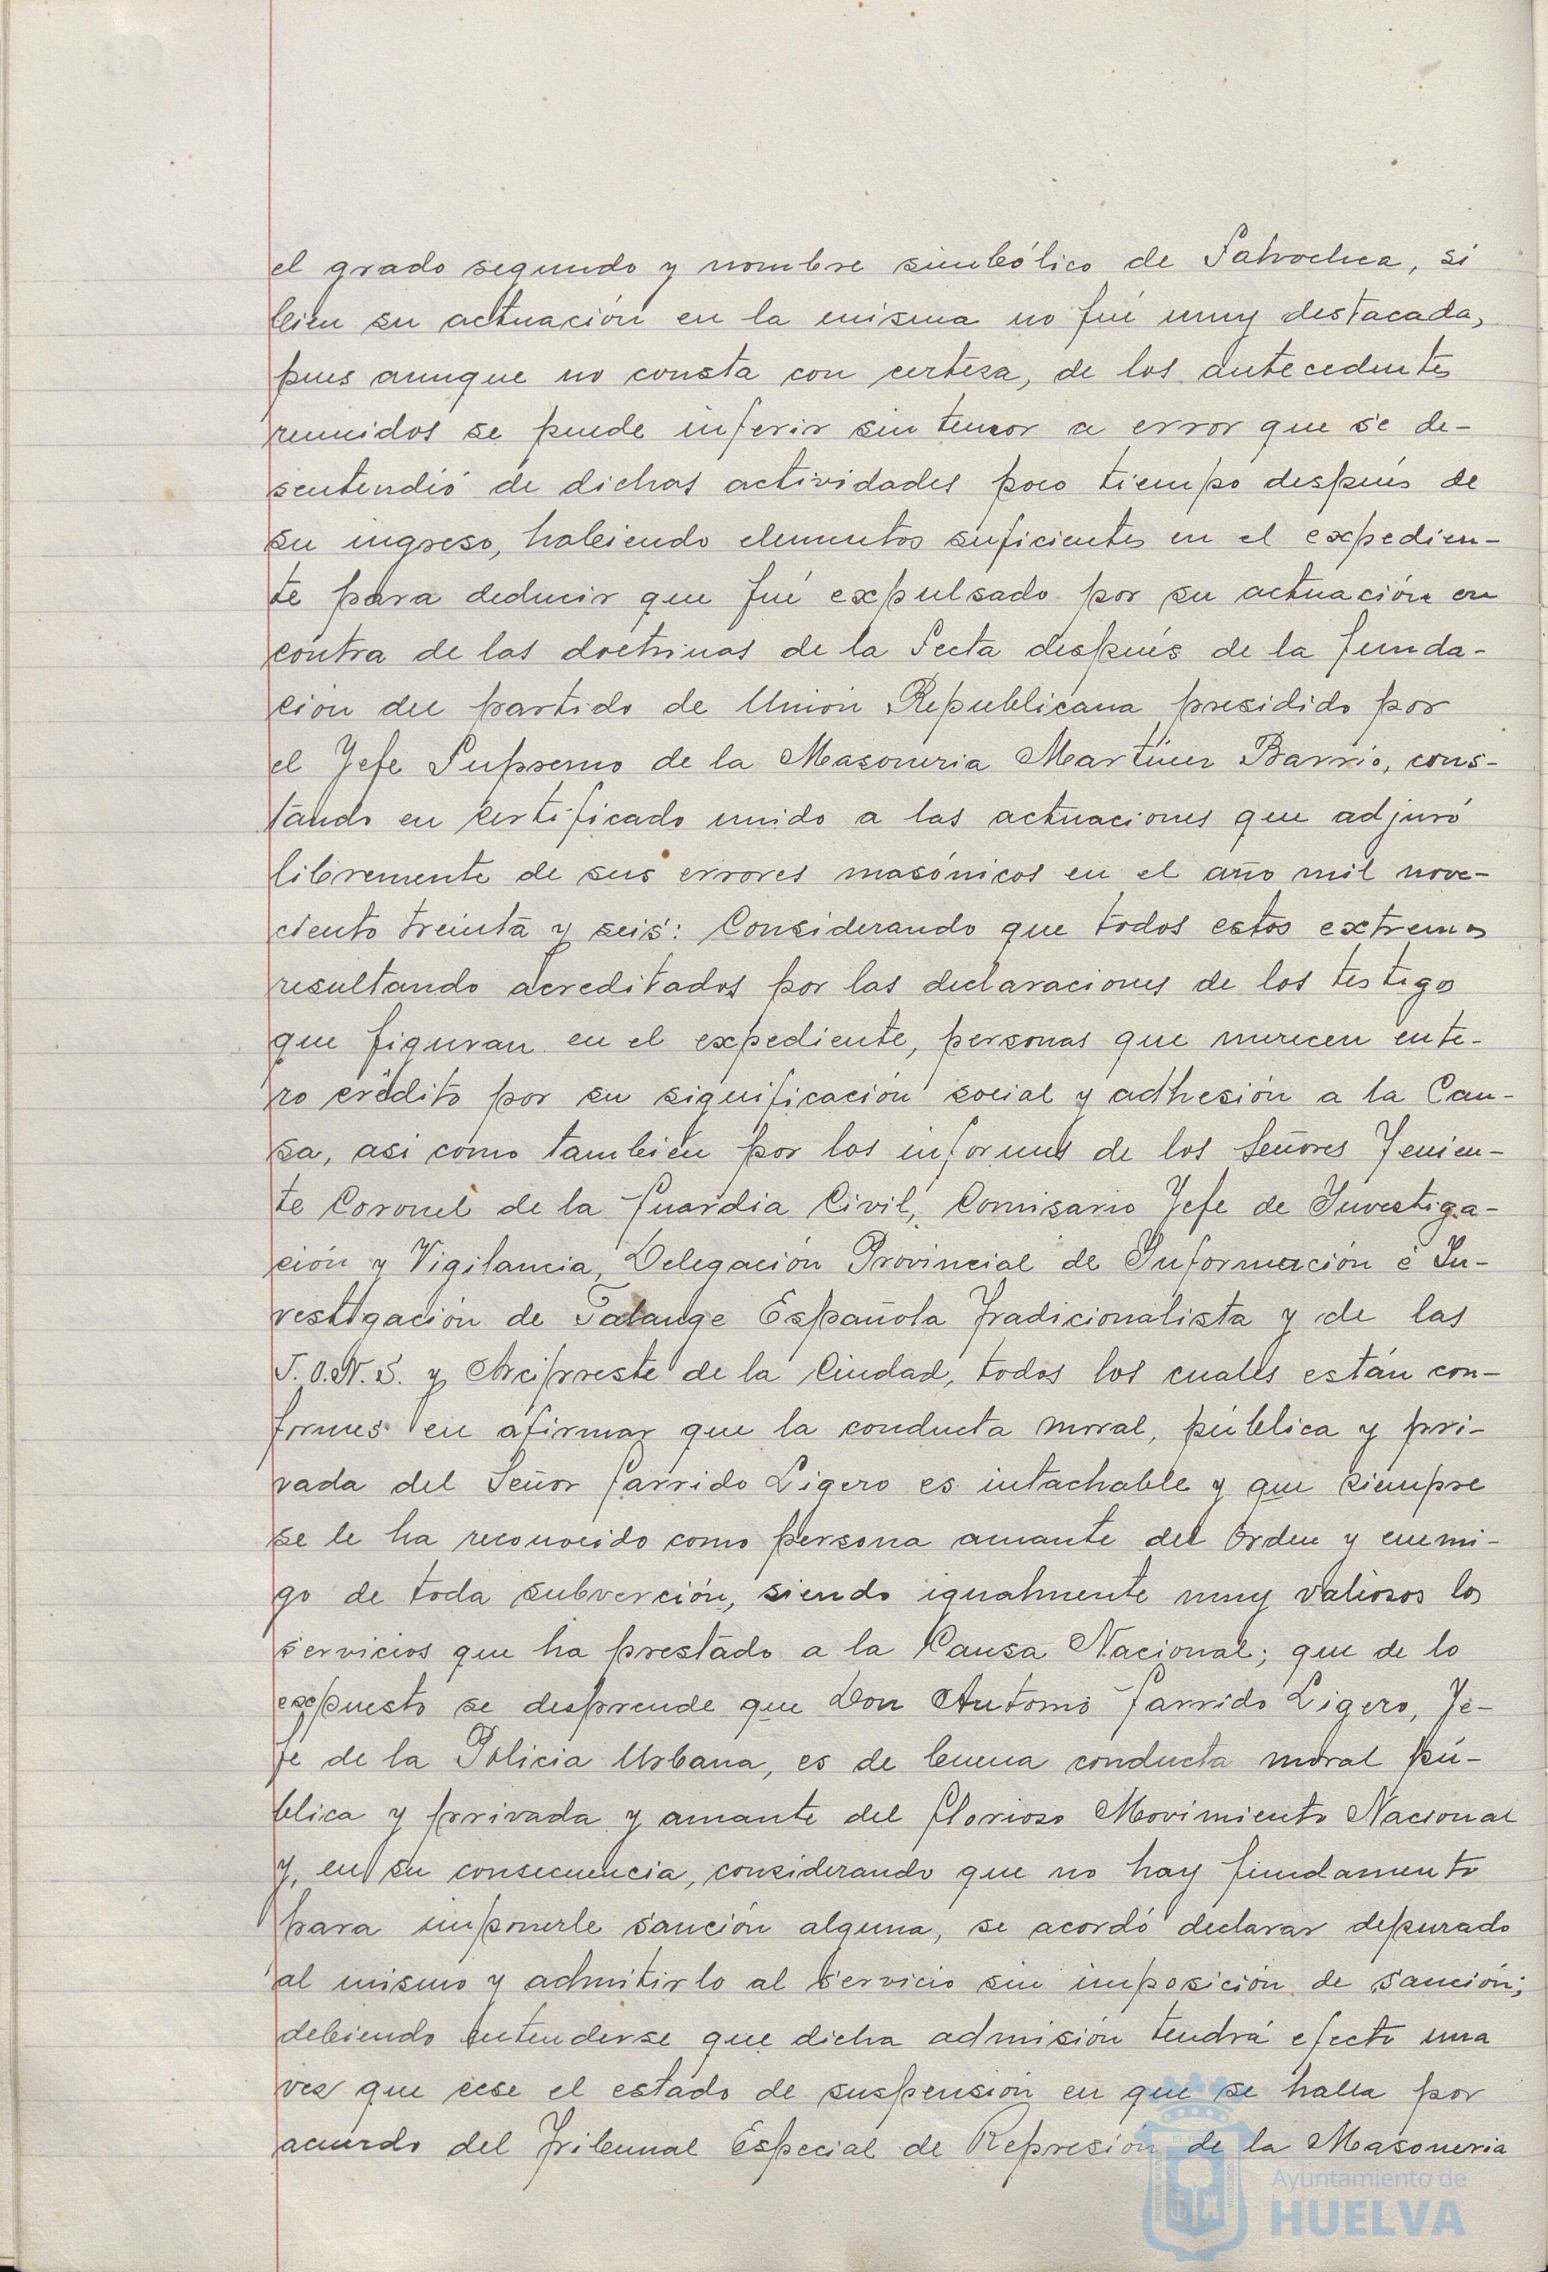 el grado segundo y nombre simbólico de Satrochea, si
bien su actuación en la misma no fué muy destacada,
pues aunque no consta con certeza, de los antecedentes
reunidos se puede inferir sin temor a error que se de-
sentendió de dichas actividades poco tiempo después de
su ingreso, habiendo elementos suficientes en el expedien-
te para deducir que fué expulsado por su actuación en
contra de las doctrinas de la Secta después de la funda-
ción del partido de Unión Republicana presidido por
el Jefe Supremo de la Masoneria Martínez Barrio, cons-
tando en certificado unido a las actuaciones que adjuró
libremente de sus errores masónicos en el año mil nove-
ciento treinta y seis: Considerando que todos estos extremos
resultando acreditados por las declaraciones de los testigos
que figuran en el expediente, personas que merecen ente-
ro crédito por su significación social y adhesión a la Cau-
sa, asi como también por los informes de los Señores Tenien-
te Coronel de la Guardia Civil, Comisario Jefe de Investiga-
ción y Vigilancia, Delegación Provincial de Información é In-
vestigación de Falange Española Tradicionalista y de las
J.O.N.S. y Arcipreste de la Ciudad, todos los cuales están con-
formes en afirmar que la conducta moral, pública y pri-
vada del Señor Garrido Ligero es intachable y que siempre
se le ha reconocido como persona amante del Orden y enemi-
go de toda subverción, siendo igualmente muy valiosos los
servicios que ha prestado a la Causa Nacional; que de lo
expuesto se desprende que Don Antonio Garrido Ligero, Je-
fe de la Policia Urbana, es de buena conducta moral pú-
blica y privada y amante del Glorioso Movimiento Nacional
y, en su consecuencia, considerando que no hay fundamento
para imponerle sanción alguna, se acordó declarar depurado
al mismo y admitirlo al servicio sin imposición de sanción;
debiendo entenderse que dicha admisión tendrá efecto una
vez que cese el estado de suspensión en que se halla por
acuerdo del Tribunal Especial de Represión de la Masoneria
Ayuntamiento de
HUELVA